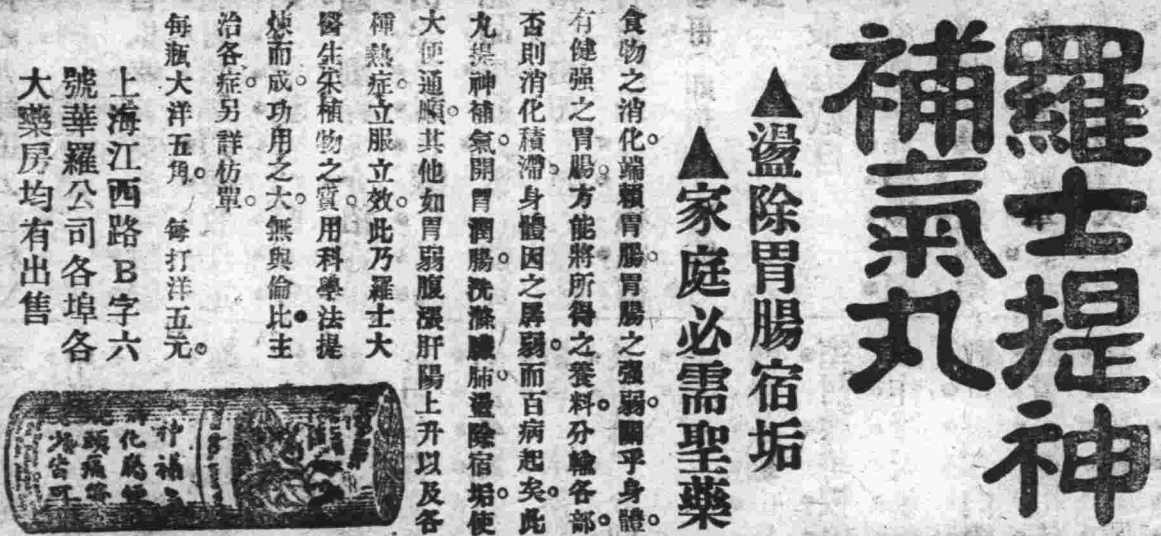 羅士提神
補氣丸
▲盪除胃腸宿垢
▲家庭必需聖藥
食物之消化。端賴胃腸。胃腸之强弱。關乎身體。
有健强之胃腸。方能將所得之養料。分輸各部。
否則消化積滯。身體因之孱弱。而百病起矣。此
丸提神補氣。開胃潤腸。洗滌臟肺。盪除宿垢。使
大便通順。其他如胃弱腹漲肝陽上升以及各
種熱症。立服立效。此乃羅士大
醫生采植物之質。用科學法提
煉而成。功用之大。無與倫比。主
治各症。另詳仿單。
每瓶大洋五角。 每打洋五元。
上海江西路B字六
號華羅公司各埠各
大藥房均有出售
神補